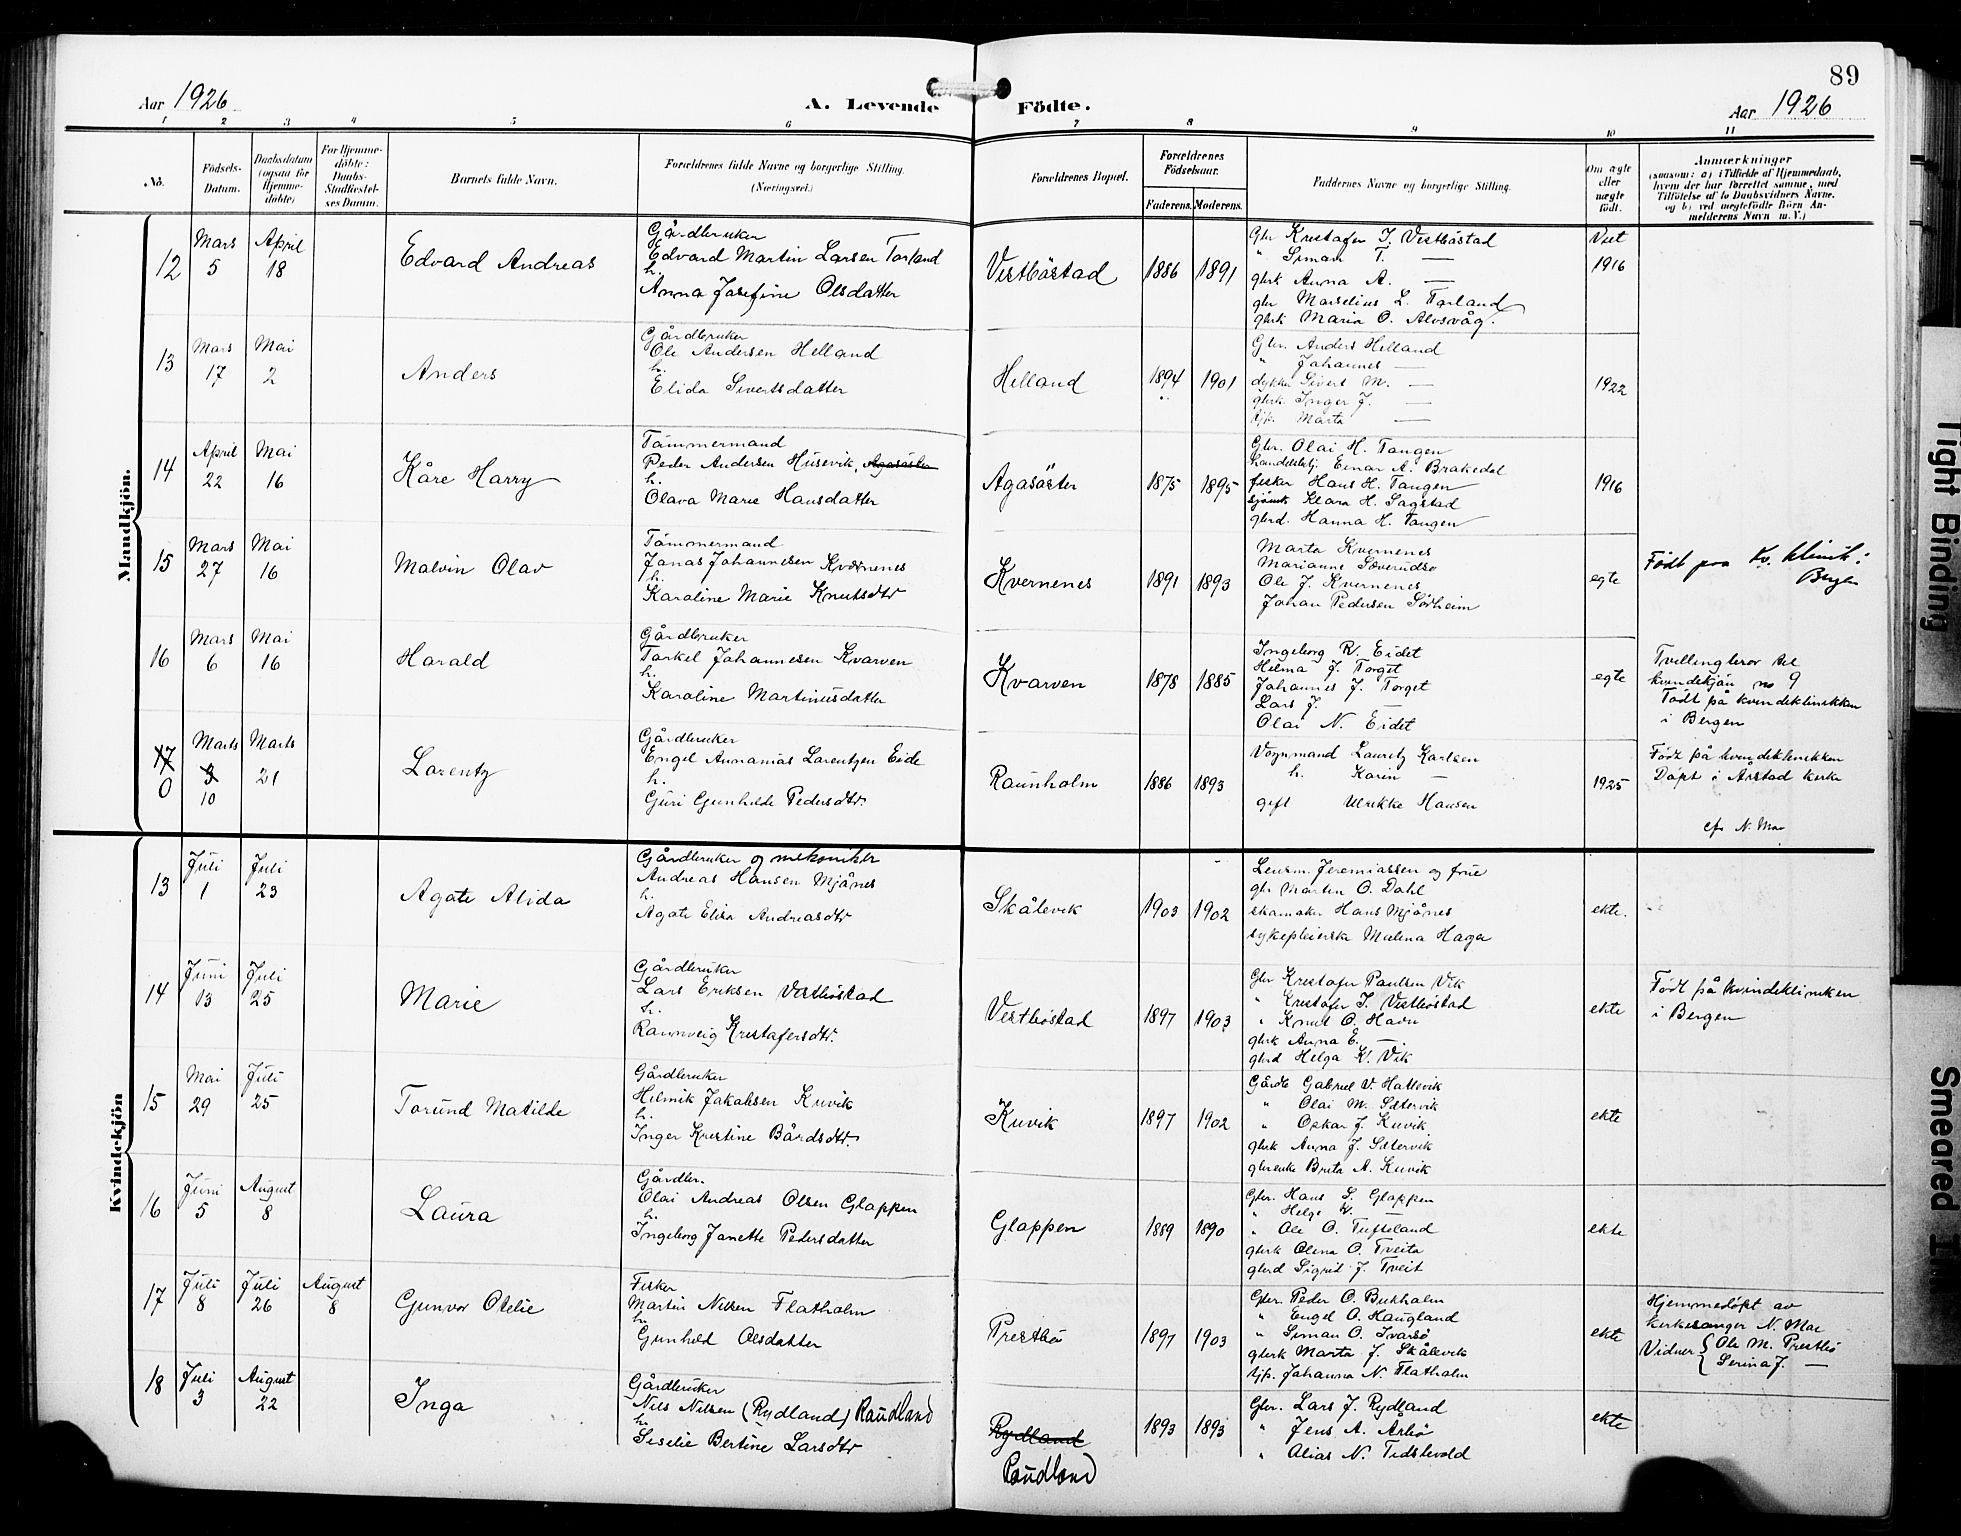 89
Aar 1926
A. Levende Födte.
Aar 1926
1 2 3 4 5 6 7 8 9 10 11
No.
Födsels-
Datum.
Daabsdatum
(ogsaa for
Hjemme-
döbte)
For Hjemme-
döbte:
Daabs-
Stadfæstel-
ses Datum.
Barnets fulde Navn.
Forældrenes fulde Navne og borgerlige Stilling.
(Næringsvei.)
Forældrenes Bopæl.
Forældrenes
Födselsaar.
Faderens. Moderens.
Faddernes Navne og borgerlige Stilling.
Om ægte
eller
uægte
födt.
Anmærkninger
(saasom: a) i Tilfælde af Hjemmedaab,
hvem der har forrettet samme, med
Tilföielse af to Daabsvidners Navne.
og b) ved uægtefödte Börn An-
melderens Navn m. V.)
Mandkjön.
12
Mars
5
April
18
Edvard Andreas
Gårdbruker
Edvard Martin Larsen Torland
h.
Anna Josefine Olsdatter
Vestbøstad
1886 1891
Gbr Kristofer I. Vestbøstad
" Simon T. —
gbrk Anna A. —
gbr Marselius L. Torland
gbrk Maria O. Alvsvåg.
Viet
1916
13
Mars
17
Mai
2
Anders
Gårdbruker
Ole Andersen Helland
h.
Elida Sivertsdatter
Helland
1894 1901
Gbr. Anders Helland
" Johannes —
dykker Sivert M. —
gbrk Inger J. —
tjp. Marta —
1922
14
April
22
Mai
16
Kåre Harry
Tømmermand
Peder Andersen Husevik, Agasøster
h.
Olava Marie Hansdatter
Agasöster
1875 1895
Gbr. Olai H. Tangen
handelsbtj. Einar A. Brakedal
fisker Hans H. Tangen
sjömk Klara H. Sagstad
gbrd. Hanna H. Tangen
1916
15
Mars
27
Mai
16
Malvin Olav
Tömmermand
Jonas Johannesen Kvernenes
h.
Karoline Marie Knutsdtr
Kvernenes
1891 1893
Marta Kvernenes
Marianne Sæverudsø
Ole J. Kvernenes
Johan Pedersen Sørheim
egte
Födt paa Kv. klinik:
Bergen
16
Mars
6
Mai
16
Harald
Gårdbruker
Torkel Johannesen Kvarven
h.
Karoline Martinusdatter
Kvarven
1878 1885
Ingeborg R. Eidet
Helma J. Torget
Johannes J. Torget
Lars J. —
Olai N. Eidet
egte
Tvillingbror til
kvindekjön no 9
Födt på kvindeklinikken
i Bergen
17
0
Marts
3
10
Marts
21
Lorentz
Gårdbruker
Engel Annanias Lorentzen Eide
h.
Guri Gunhilde Pedersdtr.
Raunholm
1886 1893
Vognmand Lauritz Karlsen
h. Karin —
gift Ulrikke Hansen
1925
Födt på kvindeklinikken
Döpt i Årstad kirke
cfr N. Moe
Kvindekjön
13
Juli
1
Juli
23
Agate Alida
Gårdbruker og mekaniker
Andreas Hansen Mjånes
h.
Agate Elisa Andreasdtr
Skålevik
1903 1902
Lensm. Jeremiassen og frue
gbr Martin O. Dahl
skomaker Hans Mjånes
sykepleierske Malena Haga
ekte.
14
Juni
13
Juli
25
Marie
Gårdbruker
Lars Eriksen Vestbøstad
h.
Raunveig Kristofersdtr.
Vestbøstad
1897 1903
Gbr Kristofer Paulsen Vik
" Kristofer I. Vestbøstad
" Knut O. Havn
gbrk Anna E. —
gbrd Helga K. Vik
ekte
Født på kvindeklinikken
i Bergen
15
Mai
29
Juli
25
Torund Matilde
Gårdbruker
Helmik Jakobsen Kuvik
h.
Inger Kristine Bårdsdtr.
Kuvik
1897 1902
Gårdb Gabriel V Hattevik
" Olai M. Sætervik
" Oskar J. Kuvik
gbrk Anna J. Sætervik
gbrenke Brita A. Kuvik
ekte
16
Juni
5
August
8
Laura
Gårdbr.
Olai Andreas Olsen Glappen
h.
Ingeborg Janette Pedersdatter
Glappen
1889 1890
Gbr. Hans S. Glappen
" Helge W. —
" Ole O. Tufteland
gbrk Olena O. Tveita
gbrd Sigrid J. Tveit
ekte
17
Juli
8
Juli
26
August
8
Gunvor Otelie
Fisker
Martin Nilsen Flatholm
h.
Gunhild Olsdatter
Prestbø
1897 1903
Gbr. Peder O. Bukholm
" Engel O. Haugland
" Simon O. Ivarsø
gbrk Marta J. Skålevik
tjp. Johanna N. Flatholm
ekte
Hjemmedöpt av
kirkesanger N. Moe
Vidner { Ole M. Prestbø
{ Serina J. —
18
Juli
3
August
22
Inga
Gårdbruker
Nils Nilsen (Rydland) Raudland
h.
Siselie Bertine Larsdtr
Rydland
Raudland
1893 1893
Gbr. Lars J. Rydland
" Jens A. Årbø
" Alias N. Tidsbvold
ekte
Tight Binding
Smeared Ink